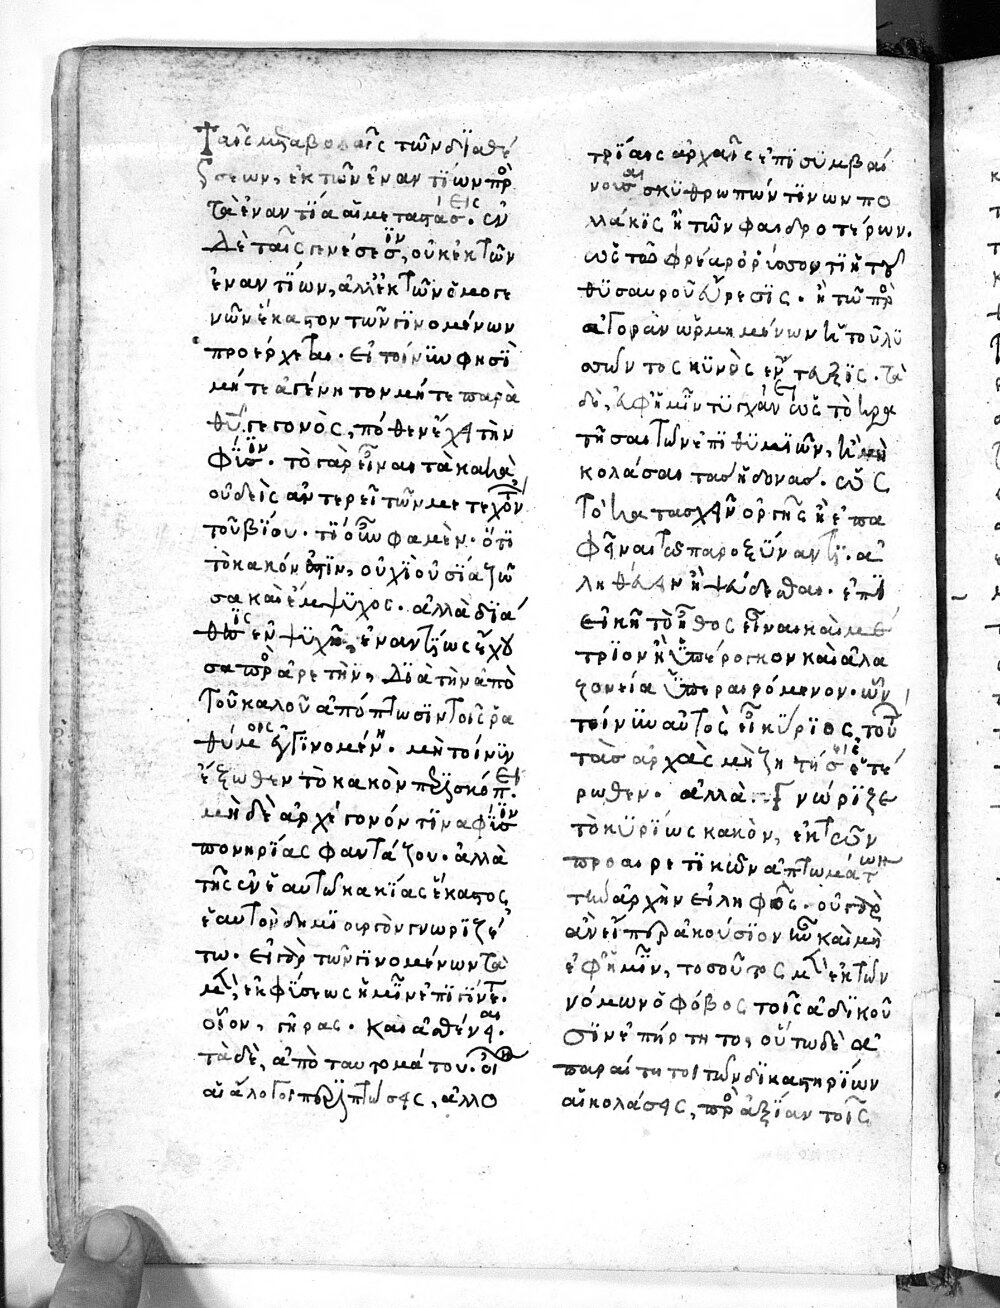 Ταῖς μεταβολαῖς τῶν διαθέ
σεων, ἐκ τῶν ἐναντίων πρὸς
τὰ ἐναντία αἱ μεταστάσεις. ἐν
δὲ ταῖς γενέσεσιν, οὐκ ἐκ τῶν
ἐναντίων, ἀλλ' ἐκ τῶν ὁμογε
νῶν ἕκαστον τῶν γινομένων
προέρχεται. εἰ τοίνυν φησὶ
μήτε ἀγένητον μήτε παρὰ
θεοῦ γεγονὸς, πόθεν ἔχει τὴν
φύσιν. τὸ γὰρ εἶναι τὰ κακὰ
οὐδεὶς ἀντερεῖ τῶν μετεχόντων
τοῦ βίου. τί οὖν φαμὲν. ὅτι
τὸ κακόν ἐστιν, οὐχὶ οὐσία ζῶ
σα καὶ ἔμψυχος. ἀλλὰ διά
θεσις ἐν ψυχῇ, ἐναντίως ἔχου
σα πρὸς ἀρετὴν, διὰ τὴν ἀπὸ
τοῦ καλοῦ ἀπόπτωσιν τοῖς ῥα
θύμοις ἐγγινομένη. μὴ τοίνυν
ἔξωθεν τὸ κακὸν περισκόπει.
μηδὲ ἀρχέγονόν τινα φύσιν
πονηρίας φαντάζου. ἀλλὰ
τῆς ἐν ἑαυτῷ κακίας ἕκαστος
ἑαυτὸν δημιουργὸν γνωριζέ
τω. εἰ γὰρ τῶν γινομένων τὰ
μὲν, ἐκ φύσεως ἡμῖν ἐπιγίνεται.
οἷον, γῆρας. καὶ ἀσθένειαι.
τὰ δὲ, ἀπὸ ταυτομάτου. οἷον
αἱ ἄλογοι περιπτώσεις, ἀλλο
τρίαις ἀρχαῖς ἐπισυμβαί
νουσαι σκυθρωπῶν τινων πο
λλάκις ἢ τῶν φαιδροτέρων.
ὡς τῷ φρέαρ ὀρύσσοντι ἡ τοῦ
θησαυροῦ εὕρεσις. ἢ τῷ πρὸς
ἀγορὰν ὡρμημένῳ ἡ τοῦ λυ
σσῶντος κυνὸς ἔντευξις. τὰ
δὲ, ἐφ' ἡμῖν τυγχάνει ὡς τὸ κρα
τῆσαι τῶν ἐπιθυμιῶν, ἢ μὴ
κολάσαι τὰς ἡδονάς. ὡς
τὸ κατασχεῖν ὀργῆς ἢ ἐπα
φεῖναι τῷ παροξύναντι. ἀ
ληθεύειν ἢ ψεύδεσθαι. ἐπι
εικῆ τὸ ἦθος εἶναι καὶ μέ
τριον ἢ ὑπέρογκον καὶ ἀλα
ζονεία ὑπεραιρόμενον. ὧν
τοίνυν αὐτὸς εἶ κύριος, τούτων
τὰς ἀρχὰς μὴ ζητήσεις ἑτέ
ρωθεν. ἀλλὰ γνώριζε
τὸ κυρίως κακὸν, ἐκ τῶν
προαιρετικῶν ἀποπτωμάτων
τὴν ἀρχὴν εἰληφός. οὐ γὰρ
ἂν εἴπερ ἀκούσιον ἦν καὶ μὴ
ἐφ' ἡμῖν, τοσοῦτος μὲν ἐκ τῶν
νόμων ὁ φόβος τοῖς ἀδικοῦ
σιν ἐπήρτητο, οὕτω δὲ ἀ
παραίτητοι τῶν δικαστηρίων
αἱ κολάσεις, πρὸς ἀξίαν τοῖς